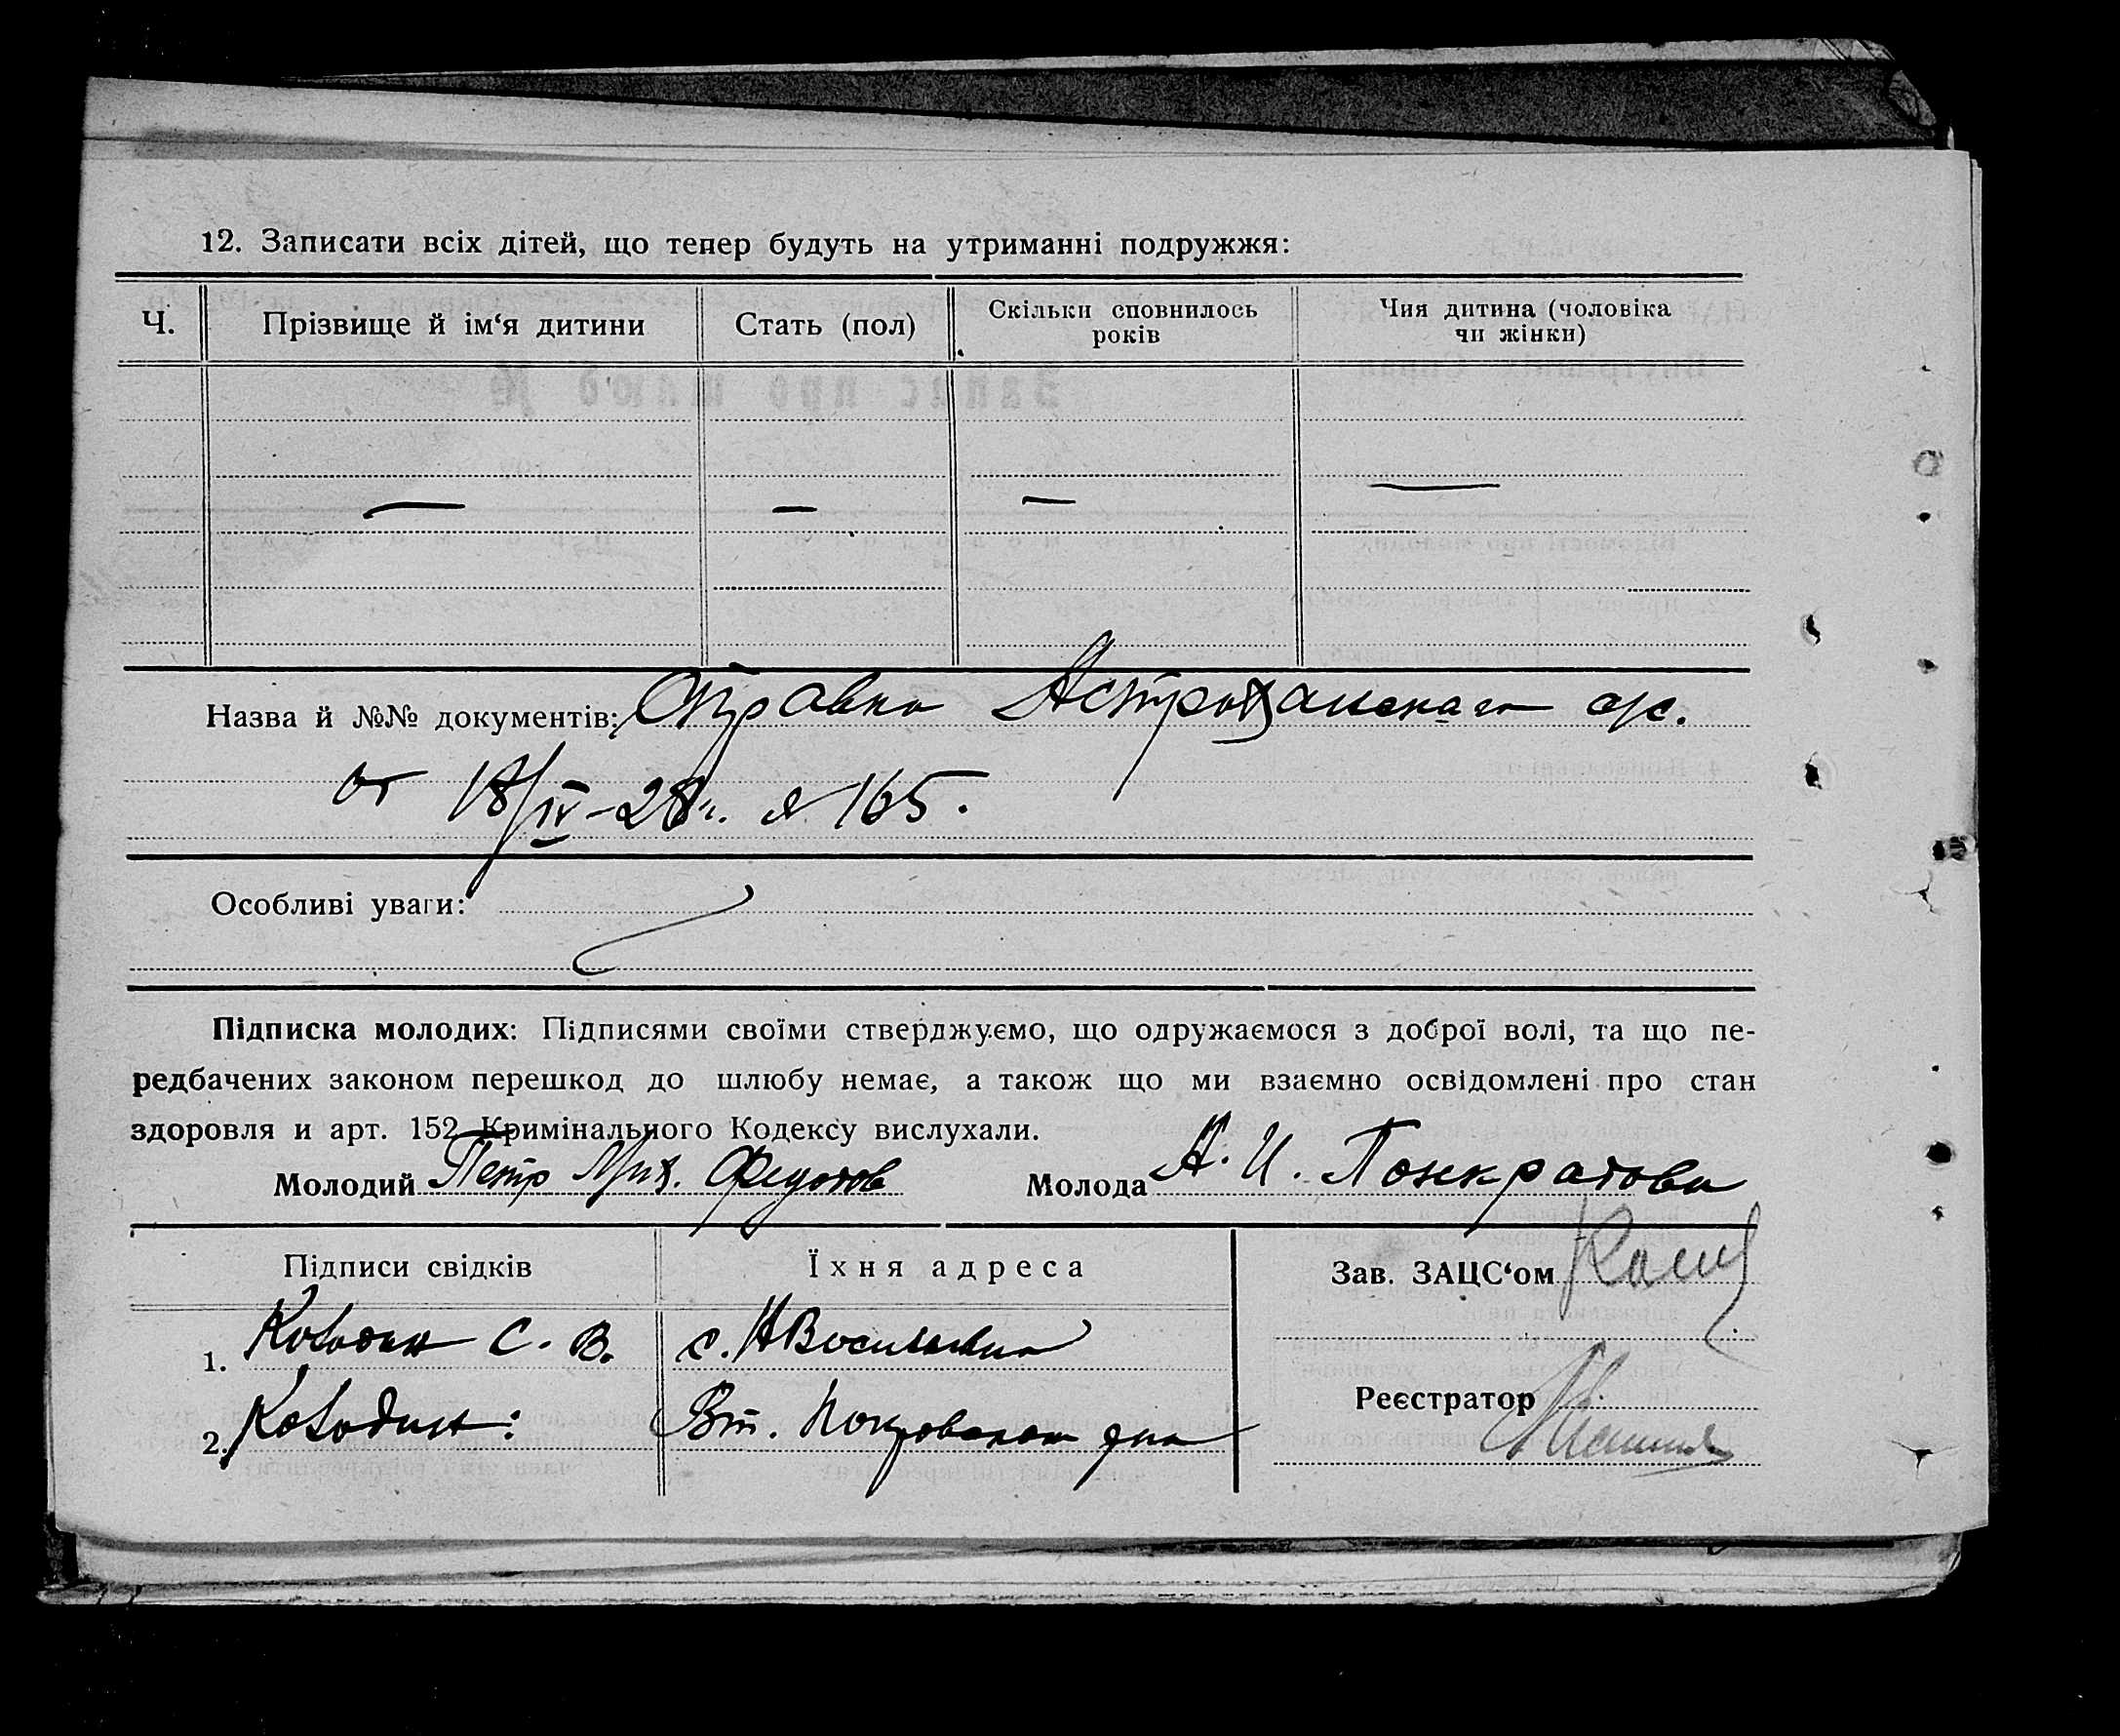 12. Записати всіх дітей, що тепер будуть на утриманні подружжя:
Ч. Прізвище й ім‘я дитини Стать (пол) Скільки сповнилось років Чия дитина (чоловіка чи жінки)
— — — —
Назва й №№ документів: Справка Астраханскаго с/с.
от 18/IV-28г. № 165.
Особливі уваги:
Підписка молодих: Підписями своїми стверджуємо, що одружаємося з доброї волі, та що пе-
редбачених законом перешкод до шлюбу немає, а також що ми взаємно освідомлені про стан
здоровля и арт. 152 Кримінального Кодексу вислухали.
Молодий Петр Мих. Федотов Молода А. И. Панкратова
Підписи свідків Їхня адреса Зав. ЗАЦС‘ом
1. Колодин С. В. с. НВасильевка
Реєстратор
2. Колодин: Вт. Покровская